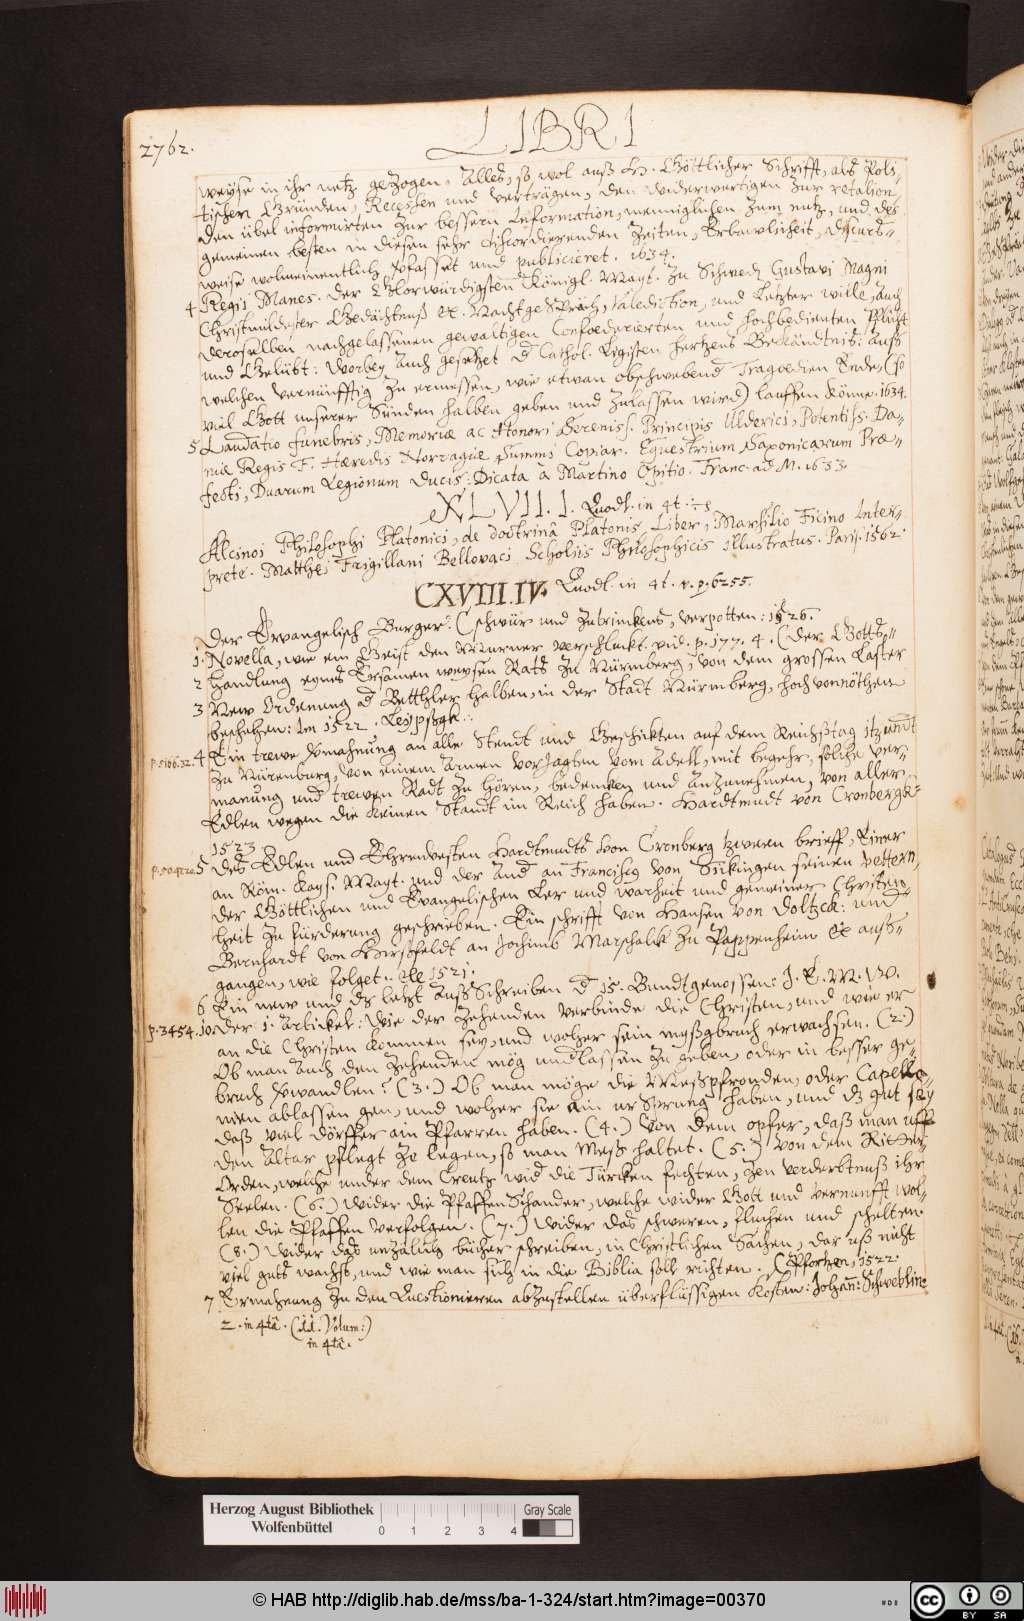 2762.
LIBRI
weyse in ihr netz gezogen. Alles, so wol auß H. Göttlicher Schrifft, als Poli-
tischen Gründen, Recessen und Verträgen, den widerwertigen zur retalion
den übel informirten zur bessern Information, menniglichen zum nutz, und des
gemeinen besten in diesen sehr discordierenden Zeiten, Erbawlicheit, discurs-
weise wolmeinentlich verfasset und publicieret. 1634.
4 Regii Manes. Der Glorwürdigsten Königl. Mayt. zu Schweden Gustavi Magni
Christmildester Gedächtnuß etc. Nachtgespräch, Valediction, und Letzter wille, auch
deroselben nachgelassenen gewaltigen Confoederierten und hochbedienten Pflicht
und Gelübt: Worbey auch gesetzet der Cathol. Ligisten hertzens Bekändtnis: auß
welchen vernünfftig zu ermessen, wie etwan obschwebend Tragoedien Ende, (so
viel Gott unserer Sünden halben geben und zulassen wird) lauffen könne. 1634.
5 Laudatio funebris, Memoriæ ac Honori Sereniss. Principis Ulderici, Potentiss. Da-
niæ Regis F. Hæredis Norvagiæ Summi Copiar. Equestrium Saxonicarum Præ-
fecti, Duarum Legionum Ducis: Dicata à Martino Opitio. Franc. ad M. 1633.
XLVII. 1. Quodl. in 4t.
Alcinoi Philosophi Platonici, de doctrinâ Platonis, Liber, Marsilio Ficino Inter-
prete. Matthei Frigillani Bellovaci Scholiis Philosophicis illustratus. Parij. 1562.
CXVIII.IV. Quodl. in 4t. v. p. 6255.
Der Evangelisch Burger. (schwür und zutrinkens, verpotten: 1526.
1. Novella, wie ein Geist den Murner verschluckt. vid. p. 177. 4. (der Gotts-
2 Handlung eynes Ersamen weysen Rats zu Nürmberg, von dem grossen Laster
3 New Ordenung der Betthler halben, in der Stadt Nürmberg, hoch vonnöthen
beschehen: Im 1522. Leypszgk.
p. 5106.32. 4 Ein trewe vermahnung an alle Stendt und Geschickten auf dem Reichßtag itzundt
zu Nürenburg, von einem Armen verjagten vom Adell, mit begehr, solche ver-
manung und trewen Radt zu hören, bedencken und anzunehmen, von aller
Edlen wegen die keinen Standt im Reich haben. Hardtmudt von Cronbergk
1523
5 Des Edlen und Ehrenvesten Hardtmudts von Cronberg zween brieff, Einer
an Röm. Kays. Mayt. und der Ander an Francisco von Sickingen seinen vettern,
der Göttlichen und Evangelischen Ler und warheit und gemeiner Christen-
heit zu fürderung geschrieben. Ein schrifft von Hansen von Doltzck: und
Bernhardt von Hirsfeldt an Joachimb Marschalck zu Pappenheim etc auß-
gangen, wie folget. 1521.
6 Ein new und dz letzt außschreiben der 15. Bundtgenossen: J. E. M. W.
p. 3454.10. Der 1. Artickel: Wie der Zehenden verbinde die Christen, und wie er
an die Christen kommen sey, und wolher sein myßgbrauch erwachsen. (2.)
Ob man auch den Zehenden mög underlassen zu geben, oder in besser ge-
brauch verwandlen? (3.) Ob man möge die Meßpfronden, oder Capella-
nien ablassen gen, und wolher sie ain ursprung haben, und dz gut sey
daß viel dörffer ain Pfarren haben. (4.) Von dem opfer, daß man uff
den altar pflegt ze legen, so man Meß haltet. (5.) Von dem Ritter-
Orden, welche under dem Creutz wider die Türcken fechten, zen verderbtnuß ihr
Seelen. (6.) Wider die Pfaffen Schander, welche wider Gott und vernunfft wol-
len die Pfaffen verfolgen. (7.) Wider das schweren, fluchen und schelten.
(8.) Wider das unzalich bücher schreiben, in Christlichen Sachen, dar uß nicht
viel guts wachst, und wie man sich in die Biblia soll richten. (Pfortzen, 1522.
7. Ermahnung zu den Questionieren abzestellen überflüssigen Kosten: Johann: Schweblin.
2. in 4tâ. (11. Volum:)
in 4tâ.
Herzog August Bibliothek
Wolfenbüttel
0 1 2 3 4
Gray Scale
© HAB http://diglib.hab.de/mss/ba-1-324/start.htm?image=00370
cc BY SA